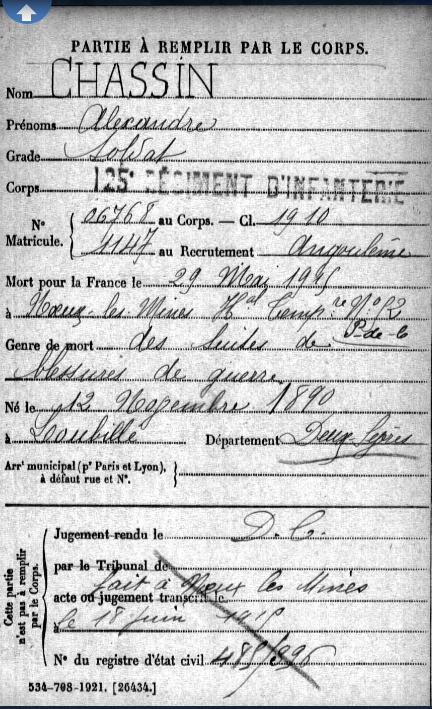 PARTIE À REMPLIR PAR LE CORPS.
Nom CHASSIN
Prénoms Alexandre
Grade Soldat
Corps 125e RÉGIMENT D'INFANTERIE
N° Matricule. { 06768 au Corps. — Cl. 1910
1147 au Recrutement Angoulême
Mort pour la France le 29 Mai 1915
à Nœux-les-Mines Hal Temp.re N° 2
P-de-C
Genre de mort des suites de
blessures de guerre
Né le 12 Novembre 1890
à Loubillé Département Deux Sèvres
Arrt municipal (pr Paris et Lyon), à défaut rue et N°. }
Cette partie n'est pas à remplir par le Corps.
Jugement rendu le D. C.
par le Tribunal de
fait à Nœux les Mines
acte ou jugement transcrit le
à le 18 juin 1915
N° du registre d'état civil
534-708-1921. [26434.]